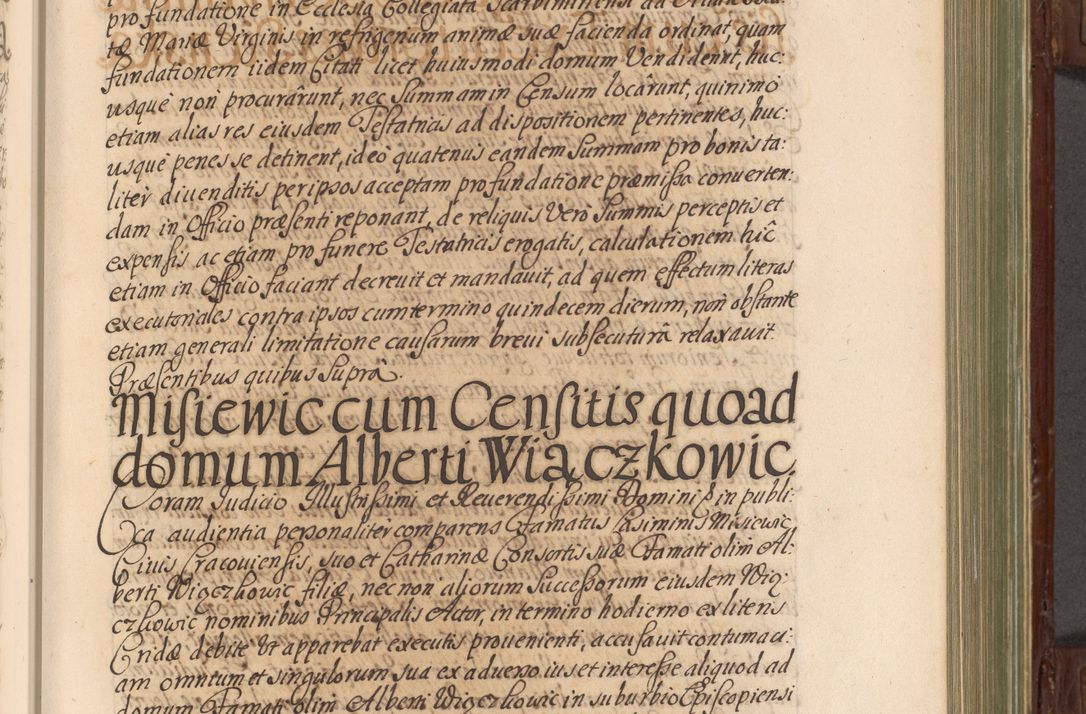 pro fundatione in Ecclesia Collegiata Scarbimiriensi ad
tæ Mariæ Virginis in refrigenum animæ suæ facienda ordinat, quam
fundationem iidem Citati licet huiusmodi domum Vendiderint, huc:
usque non procurârunt, nec Summam in Censum locârunt, quinimo
etiam alias res eiusdem Testatricis ad dispositionem pertinentes, huc:
usque penes se detinent, ideò quatenus eandem Summam pro bonis ta:
liter diuenditis per ipsos acceptam pro fundatione præmissa conuerten:
dam in Officio præsenti reponant, de reliquis Verò Summis perceptis et
expensis ac etiam pro funere Testatricis erogatis, calculationem hîc
etiam in Officio faciant decreuit et mandauit, ad quem effectum literas
executoriales contra ipsos cum termino quindecem dierum, non obstante
etiam generali limitatione causarum breui subsecuturâ relaxauit.
Præsentibus quibus Suprà.
Misiewic cum Censitis quoad
domum Alberti Wiączkowic
Coram Judicio Illustrissimi et Reuerendissimi Domini in publi:
ca audientia personaliter comparens Famatus Casimirus Misiewic
Ciuis Cracouiensis, suo et Catharinæ Consortis suæ Famati olim Al:
berti Wiączkowic filiæ, nec non aliorum Successorum eiusdem Wią:
czkowic nominibus Principalis Actor, in termino hodierno ex literis
Cridæ debitè Vt apparebat executis prouenienti, accusauit contumaci:
am omnium et singulorum sua ex aduerso ius et interesse aliquod ad
domum Famati olim Alberti Wiączkowic in suburbio Episcopiensi